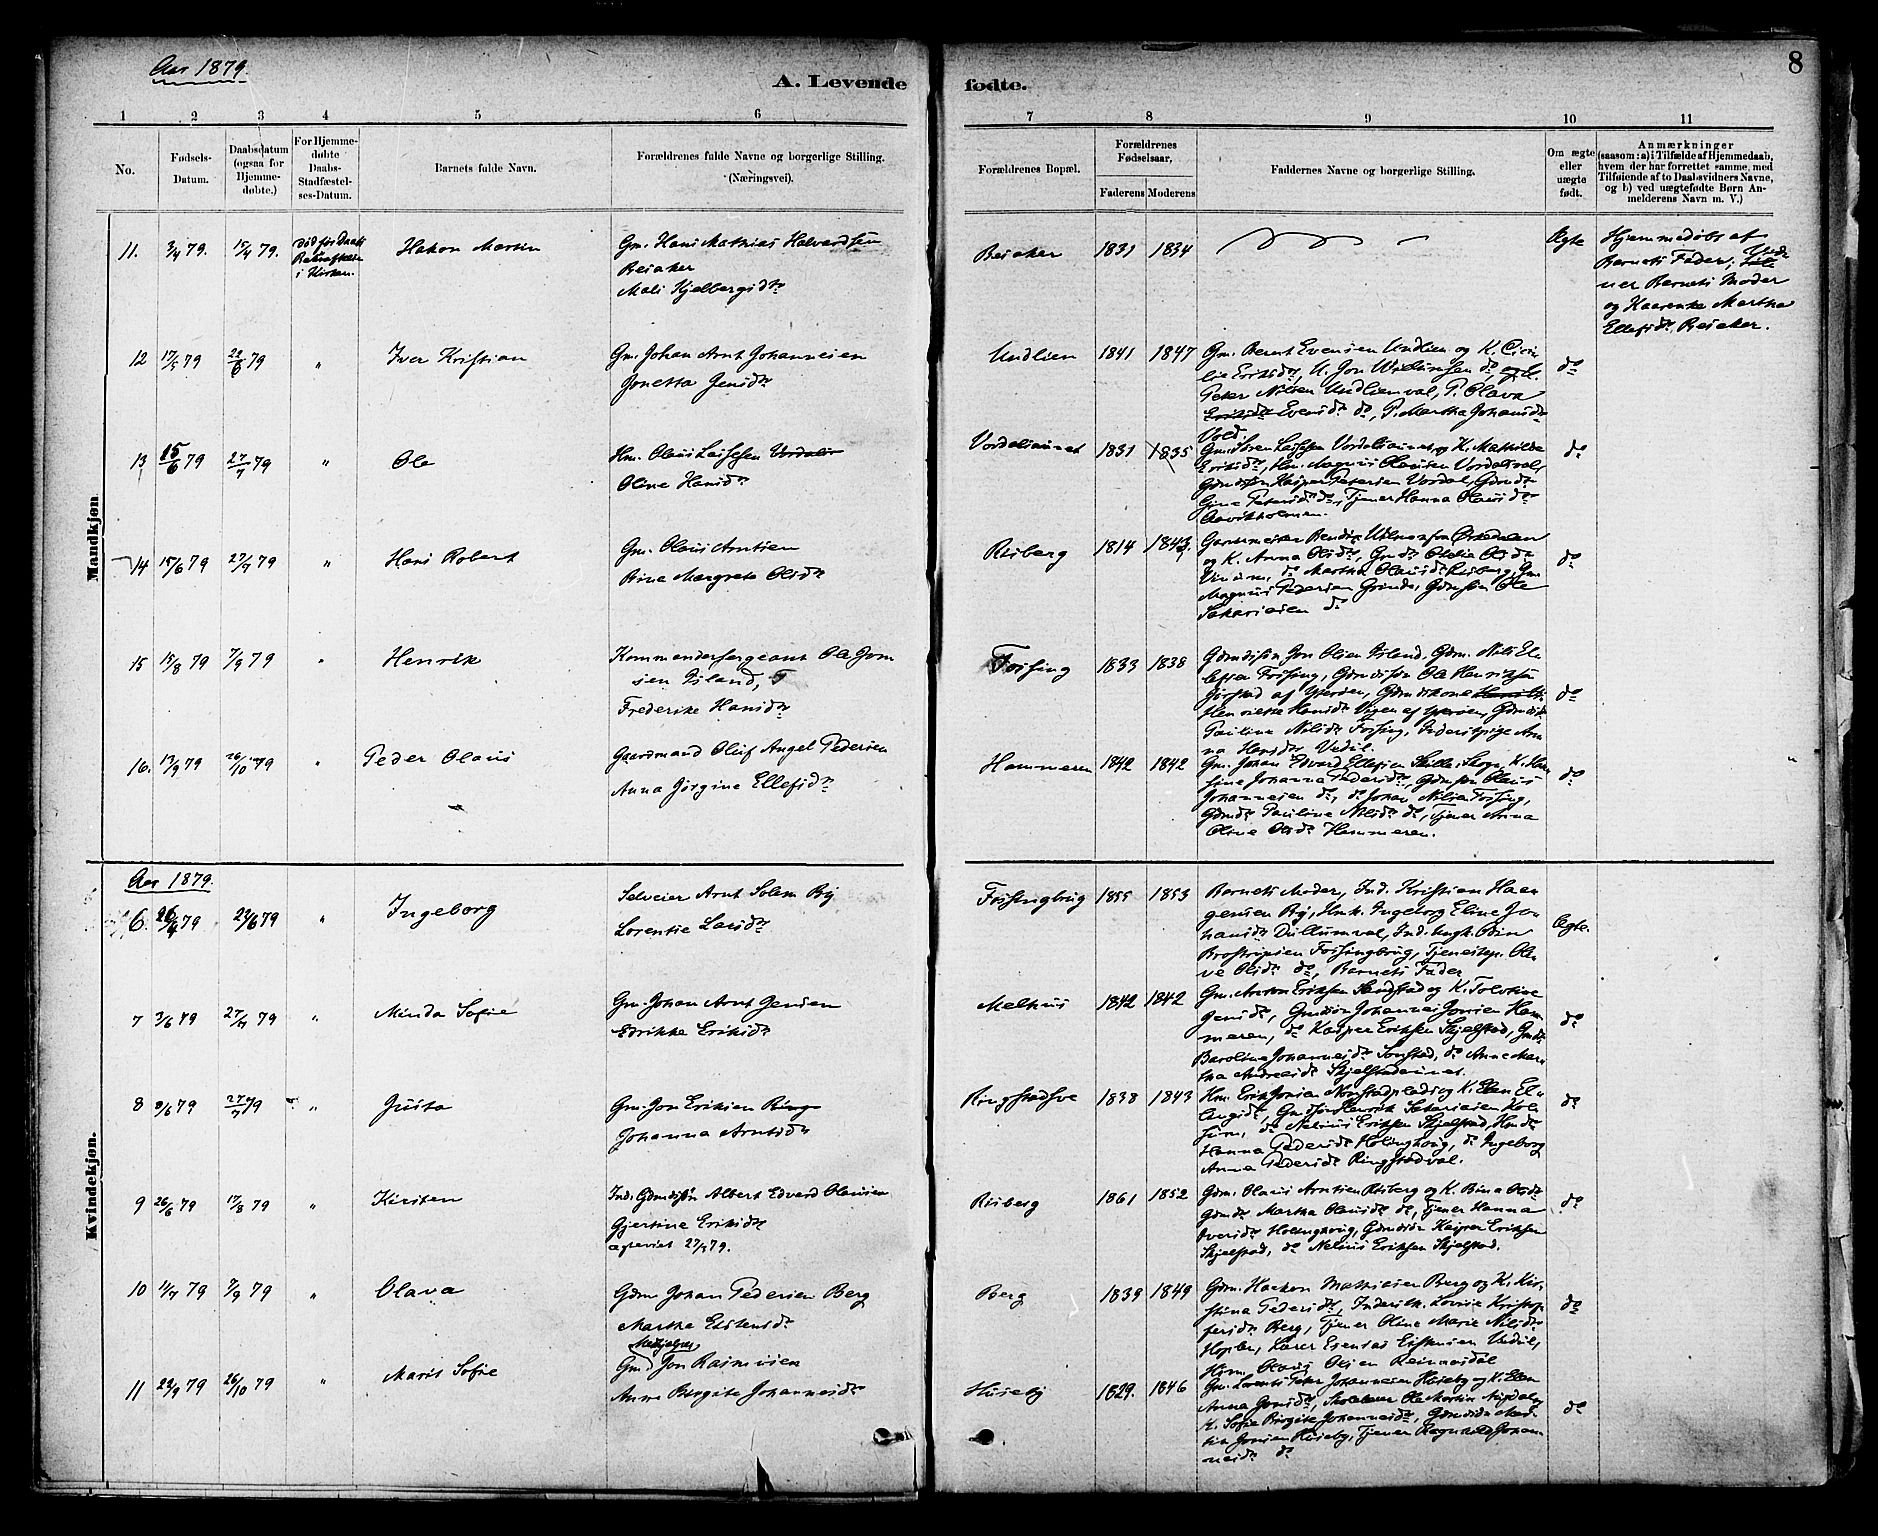 Aar 1879.
A. Levende fødte.
8
1 2 3 4 5 6 7 8 9 10 11
No.
Fødsels-Datum.
Daabsdatum (ogsaa for Hjemme-døbte.)
For Hjemme-døbte Daabs-Stadfæstel-ses-Datum.
Barnets fulde Navn.
Forældrenes fulde Navne og borgerlige Stilling. (Næringsvei).
Forældrenes Bopæl.
Forældrenes Fødselsaar,
Faderens Moderens
Faddernes Navne og borgerlige Stilling.
Om ægte eller uægte født.
Anmærkninger
(saasom: a) i Tilfælde af Hjemmedaab,
hvem der har forrettet samme, med
Tilføiende af to Daabsvidners Navne,
og b) ved uægtefødte Børn An-
melderens Navn m. V.)
Mandkjøn
11. 3/4 79. 15/4 79. død før Daabs i Kirken. Hakon Martin
Gm. Hans Mathias Halvardsen
Beiaker
Mali Kjelbergsdtr
Beiaker 1831 1834 Ægte
Hjemmedøbt af
Barnets Fader;
Barnets Moder
og Martha
Ellefsdr. Beiaker.
12 17/5 79 22/6 79 " Iver Kristian
Gm. Johan Arnt Johannesen
Jonetta Jensdr
Undlien 1841 1847
Gm. Bernt Evensen Undlien og K. Cici-
lie Eriksdr,
Peter Nilsen Undlienval, P. Olava
Evensdr do, P. Martha Johansdr
Vold.
do
13 15/6 79 27/7 79 " Ole
Hm. Olaus Larssen
Oline Hansdr
1831 1835
Gm. Søren Larssen og K. Mathilde
Eriksdr, Hm. Magnus Olaussen
Gdmdsøn Kasper Petersen Vordal, Gdmdr
Petersdr do, Tjener Hanna Olausdr
do
14 15/6 79 27/7 79 " Hans Robert
Gm. Olaus Arntsen
Bina Margrete Olsdr
Risberg 1814 1843
og K. Anna Olsdr, Gmdr Otelia Olsdr
do Martha Olausdr Risberg, Gm.
Magnus Pedersen Grinde, Gdmsøn Ole
Sakariasen do
do
15 15/8 79 7/9 79 " Henrik
Kommandersergeant Ole Jon
sen Island,
Frederike Hansdr
Forsing 1833 1838
Gdmdsøn Jon Olsen Island, Gdm. Nils El-
lefsen Forsing, Gdmdsøn Ole Henriksen
Jørstad af Ytterøen, Gdmdskone
Henriette Hansdr Vigen af Ytterøen, Gdmdr
Pauline Nilsdr Forsing, Inderstpige An-
na Hansdr Vedul.
do
16. 13/9 79 26/10 79 " Peder Olaus
Gaardmand Oluf Angel Pedersen
Anna Jørgine Ellefsdr
Hammeren 1842 1842
Gm. Johan Edvard Ellefsen
sine Johanna Pedersdr, Gdmsøn Olaus
Johannesen do, do Johan Nilsen Forsing,
Gdmdr Pauline Nilsdr do, Tjener Anna
Oline Olsdr Hammeren.
do
Kvindekjøn.
Aar 1879.
6. 26/4 79 22/6 79 " Ingeborg
Selveier Arnt Solem By
Lorentse Larsdr
Forsingbrug 1855 1853
Barnets Moder, Ind. Kristian Haa-
gensen By, Hmk. Ingeborg Eline Jo-
hansdr Dullumval, Ind. Ungk. Odin
Forsingbrug, Tjenestep. Ole-
ve Olsdr do, Barnets Fader
Ægte.
7 3/6 79 27/7 79 " Minda Sofie
Gm. Johan Arnt Jensen
Edrikke Eriksdr
Melhus 1842 1842
Gm. Anton Eriksen Sandstad og K.
Jensdr, Gmdsøn Johannes Jonsen Ham-
meren, do Kasper Eriksen Skjelstad, Gmdr
Barolina Johannesdr do Anne Mar-
tha Andreasdr Skjelstadeinet.
do
8 9/6 79 27/7 79 " Gusta
Gm. Jon Eriksen Ring
Johanna Arntsdr
Ringstadhve 1838 1843
Hm. Erik Jonsen og K. Elen El-
lingsdr, Gmdsøn Henrik Sakariasen Kol-
do Nelius Eriksen Skjelstad, Hmdr
Hanna Pedersdr Kolinghaug, do Ingeborg
Anna Pedersdr Ringstadval.
do
9 26/6 79 17/8 79 " Kirsten
Ind. Gdmdsøn Albert Edvard Olaussen
Gjertine Eriksdr
egteviet 27/7 79.
Risberg 1861 1852
Gdm. Olaus Arntsen Risberg og K. Bina Olsdr
Gdmdr Martha Olausdr do, Tjener Hanna
Iversdr Holinghaug, Gdmdsøn Kasper Eriksen
Skjelstad, do Nelius Eriksen Skjelstad.
do
10 11/7 79 7/9 79 " Olava
Gdm Johan Pedersen Berg
Martha Eistensdr
Berg 1839 1849
Gdm. Haakon Mathiasen Berg og K. Kir-
stina Pedersdr, Inderstk. Lovise Kristof-
fersdr Berg, Tjener Oline Marie Nilsdr
Hopler, Lærer Esensius Eistensen Vedul,
Hsm. Olaus Olsen Reinaasdal
do
11 22/9 79 26/10 79 " Marit Sofie
Medhjelper
Gmd Jon Rasmussen
Anne Birgite Johannesdr
Huseby 1829. 1846
Gm. Lorents Peter Johannesen Huseby og K. Elen
Anna Jonsdr, Skolelærer Ole Martin
K. Sofie Birgite Johannesdr, Gdmdsøn Mar-
tin Jonsen Huseby, Tjener Ragnhild Johan-
nesdr do
do